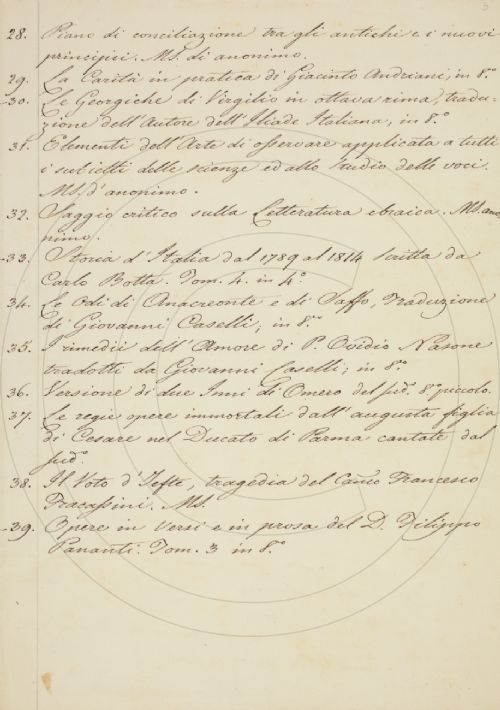 3
28. Piano di conciliazione tra gli antichi e i nuovi
principii. MS. di anonimo.
29. La Carità in pratica di Giacinto Andriani; in 8.º
-30. Le Georgiche di Virgilio in ottava rima, tradu-
zione dell'Autore dell'Iliade Italiana; in 8.º
31. Elementi dell'Arte di osservare applicata a tutti
i subietti delle scienze ed allo studio delle voci.
MS. d'anonimo.
32. Saggio critico sulla Letteratura ebraica. MS. ano-
nimo.
-33. Storia d'Italia dal 1789 al 1814 scritta da
Carlo Botta. Tom. 4. in 4.º
34. Le Odi di Anacreonte e di Saffo, Traduzione
di Giovanni Caselli; in 8.º
35. I rimedii dell'Amore di P. Ovidio Nasone
tradotti da Giovanni Caselli; in 8.º
36. Versione di due Inni di Omero del sud.º 8.º piccolo.
37. Le regie opere immortali dall'augusta figlia
di Cesare nel Ducato di Parma cantate dal
sud.º
38. Il Voto d'Jefte, tragedia del Can.co Francesco
Fracassini. MS.
-39. Opere in versi e in prosa del D. Filippo
Pananti. Tom. 3 in 8.º